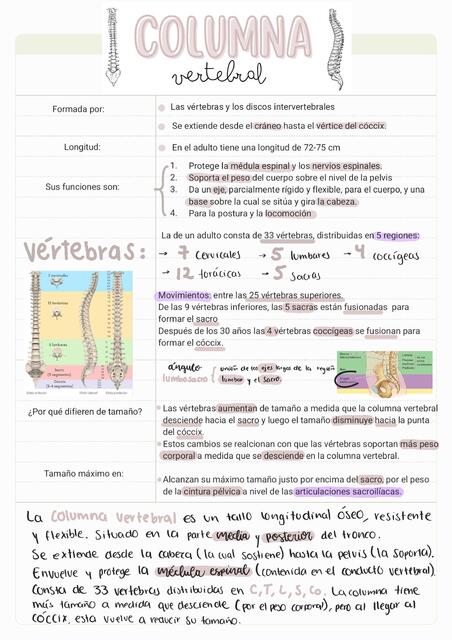 COLUMNA
vertebral
Formada por:
Las vértebras y los discos intervertebrales
Se extiende desde el cráneo hasta el vértice del cóccix.
Longitud:
En el adulto tiene una longitud de 72-75 cm
Sus funciones son:
1. Protege la médula espinal y los nervios espinales.
2. Soporta el peso del cuerpo sobre el nivel de la pelvis
3. Da un eje, parcialmente rígido y flexible, para el cuerpo, y una
base sobre la cual se sitúa y gira la cabeza.
4. Para la postura y la locomoción
vértebras:
La de un adulto consta de 33 vértebras, distribuidas en 5 regiones:
→ 7 cervicales → 5 lumbares → 4 coccígeas
→ 12 torácicas → 5 sacras
Movimientos: entre las 25 vértebras superiores.
De las 9 vértebras inferiores, las 5 sacras están fusionadas para
formar el sacro
Después de los 30 años las 4 vértebras coccígeas se fusionan para
formar el cóccix.
ángulo
lumbosacro
unión de los ejes largos de la región
lumbar y el sacro.
¿Por qué difieren de tamaño?
Las vértebras aumentan de tamaño a medida que la columna vertebral
desciende hacia el sacro y luego el tamaño disminuye hacia la punta
del cóccix.
Estos cambios se realcionan con que las vértebras soportan más peso
corporal a medida que se desciende en la columna vertebral.
Tamaño máximo en:
Alcanzan su máximo tamaño justo por encima del sacro, por el peso
de la cintura pélvica a nivel de las articulaciones sacroilíacas.
La columna vertebral es un tallo longitudinal óseo, resistente
y flexible. Situado en la parte media y posterior del tronco.
Se extiende desde la cabeza (la cual sostiene) hasta la pelvis (la soporta).
Envuelve y protege la médula espinal (contenida en el conducto vertebral).
Consta de 33 vértebras distribuidas en C, T, L, S, Co. La columna tiene
más tamaño a medida que desciende (por el peso corporal), pero al llegar al
cóccix, esta vuelve a reducir su tamaño.